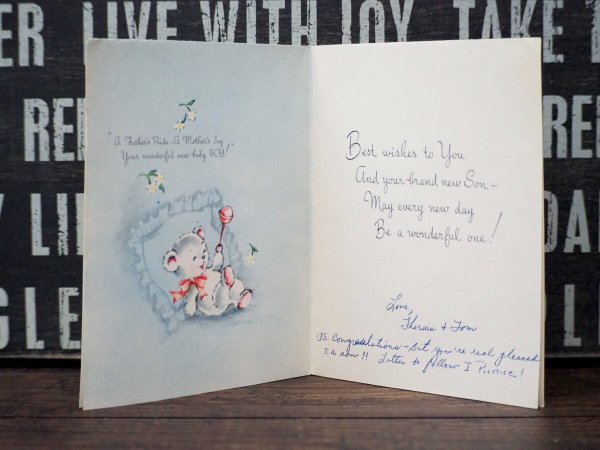 ER LIVE WITH JOY, TAKE
REL
RE
LI
DA
GLE
"A Father's Pride – A Mother's Joy
Your wonderful new baby BOY!"
Best wishes to You
And your brand new Son –
May every new day
Be a wonderful one!
Love,
Theresa & Tom
PS. Congratulations – bet you're real pleased
c a son!! Letter to follow I Promise!